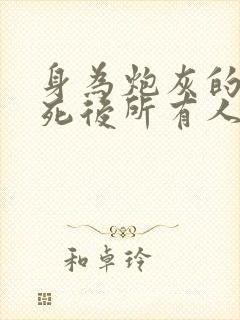 身為炮灰的
死後所有人
和卓玲